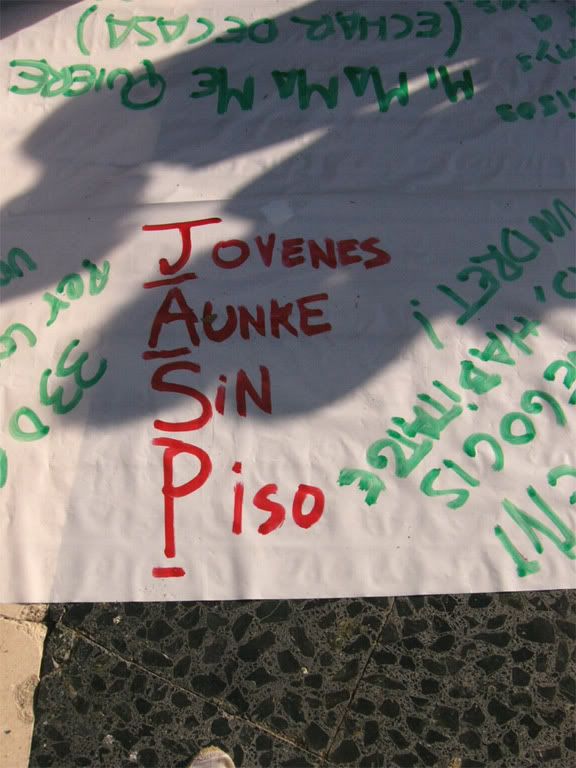 MI MAMA ME QUIERE
(ECHAR DE CASA)
JOVENES
AUNKE
SiN
PISO
NI
GOCIS
HABITATGE
UN DRET!